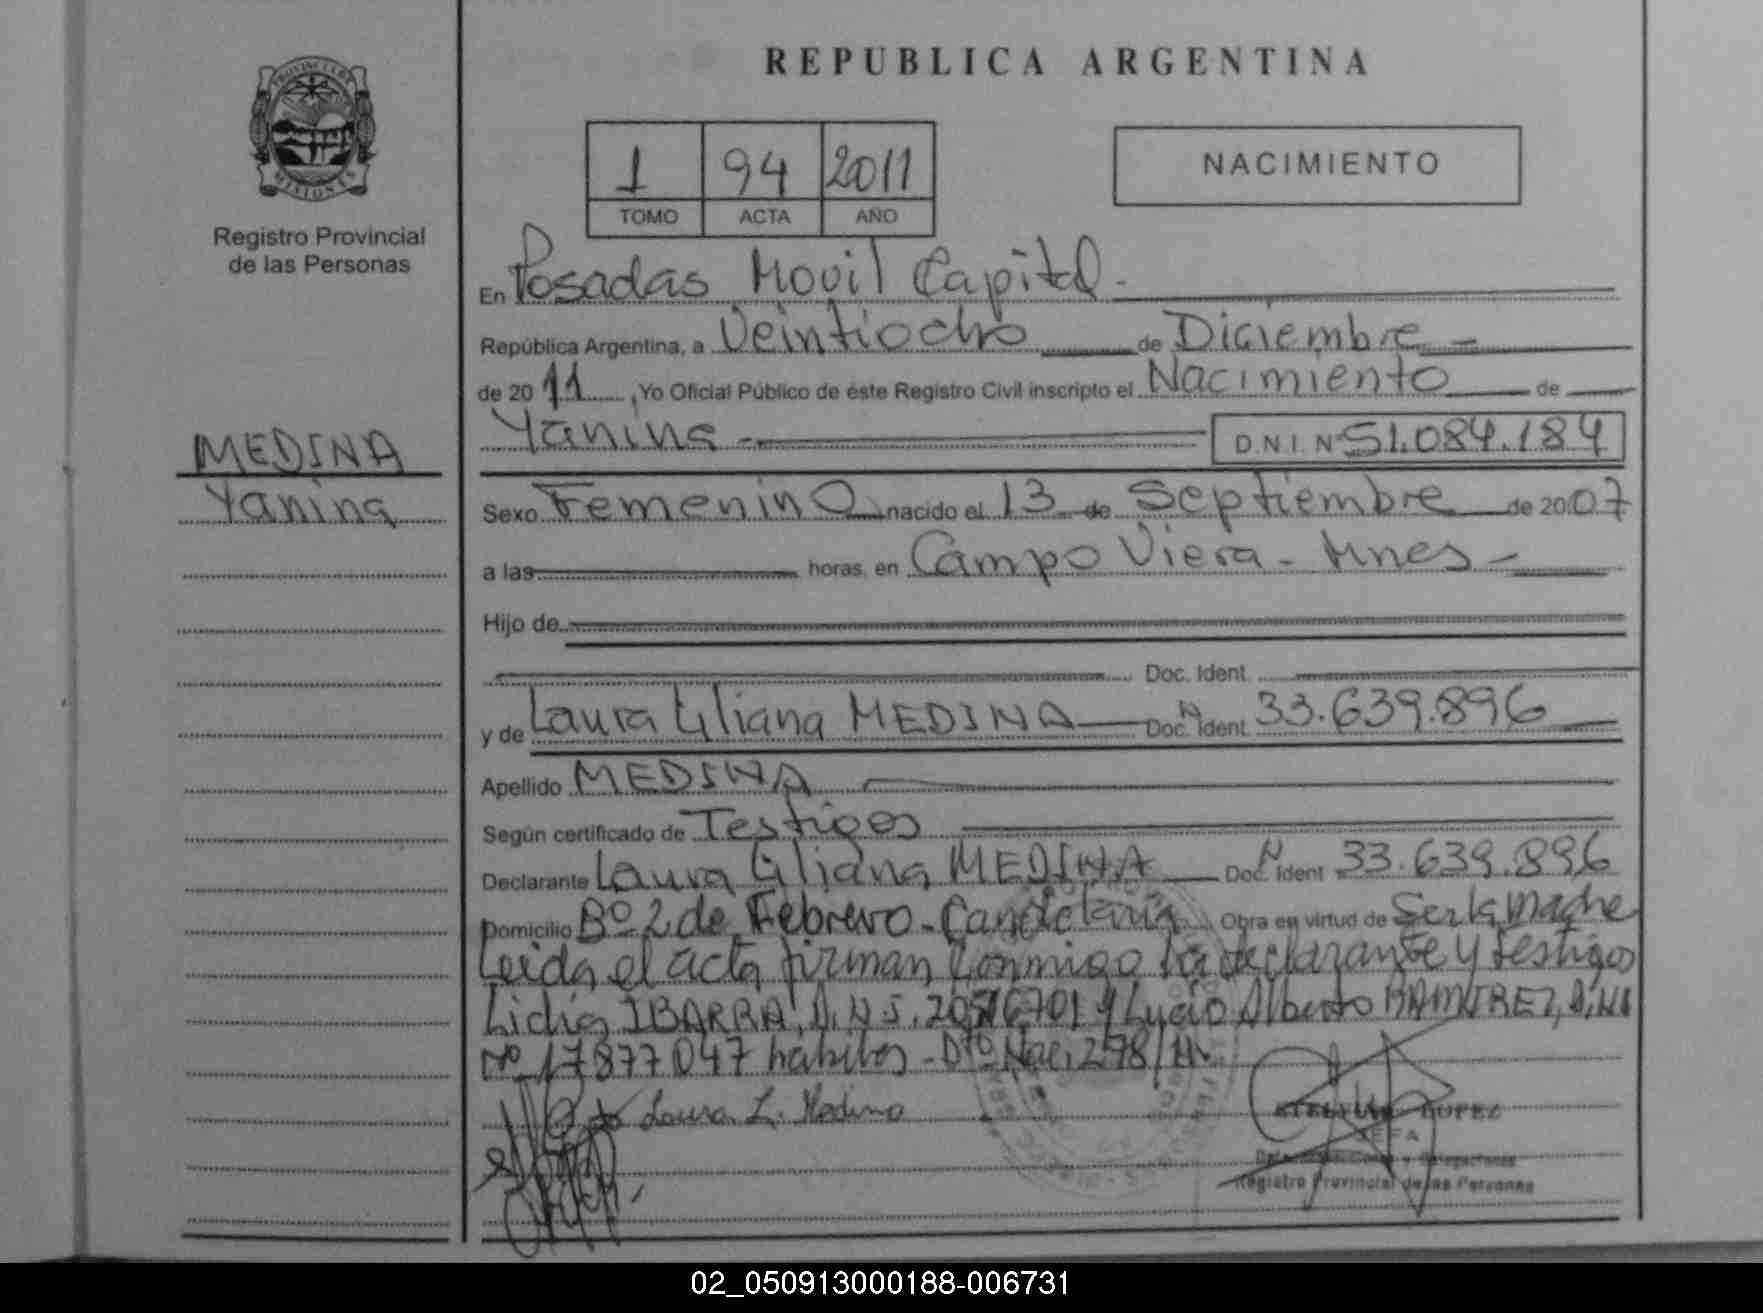 REPUBLICA ARGENTINA
PROVINCIA DE
MISIONES
Registro Provincial
de las Personas
1 94 2011
TOMO ACTA AÑO
NACIMIENTO
En Posadas Movil Capital.
República Argentina, a Veintiocho de Diciembre
de 2011, Yo Oficial Público de éste Registro Civil inscripto el Nacimiento de
Yanina D.N.I. N 51.084.184
MEDINA
Yanina
Sexo Femenino nacido el 13 de Septiembre de 2007
a las horas, en Campo Viera - Mnes -
Hijo de
Doc. Ident.
y de Laura Liliana MEDINA Doc. N Ident. 33.639.896
Apellido MEDINA
Según certificado de Testigos
Declarante Laura Liliana MEDINA Doc. N Ident 33.639.896
Domicilio Bº 2 de Febrero - Candelaria Obra en virtud de Ser la Madre
Leida el acta firman conmigo la declarante y testigos
Lidia IBARRA, D.N.I. y Lucio Alberto RAMIREZ, D.N.I
Nº 17877047 habiles - Dto Nac. 278/11.
Laura L. Medina
LOPEZ
JEFA
y Delegaciones
Registro Provincial de las Personas
02_050913000188-006731